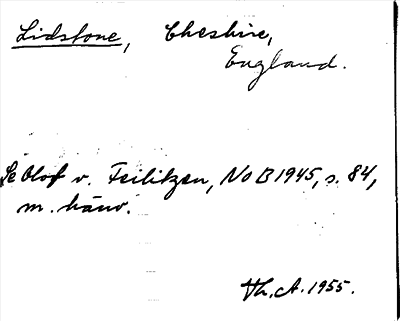 Lidstone, Cheshire,
England.
Se Olof v. Feilitzen, NoB 1945, s. 84,
m. hänv.
Th. A. 1955.